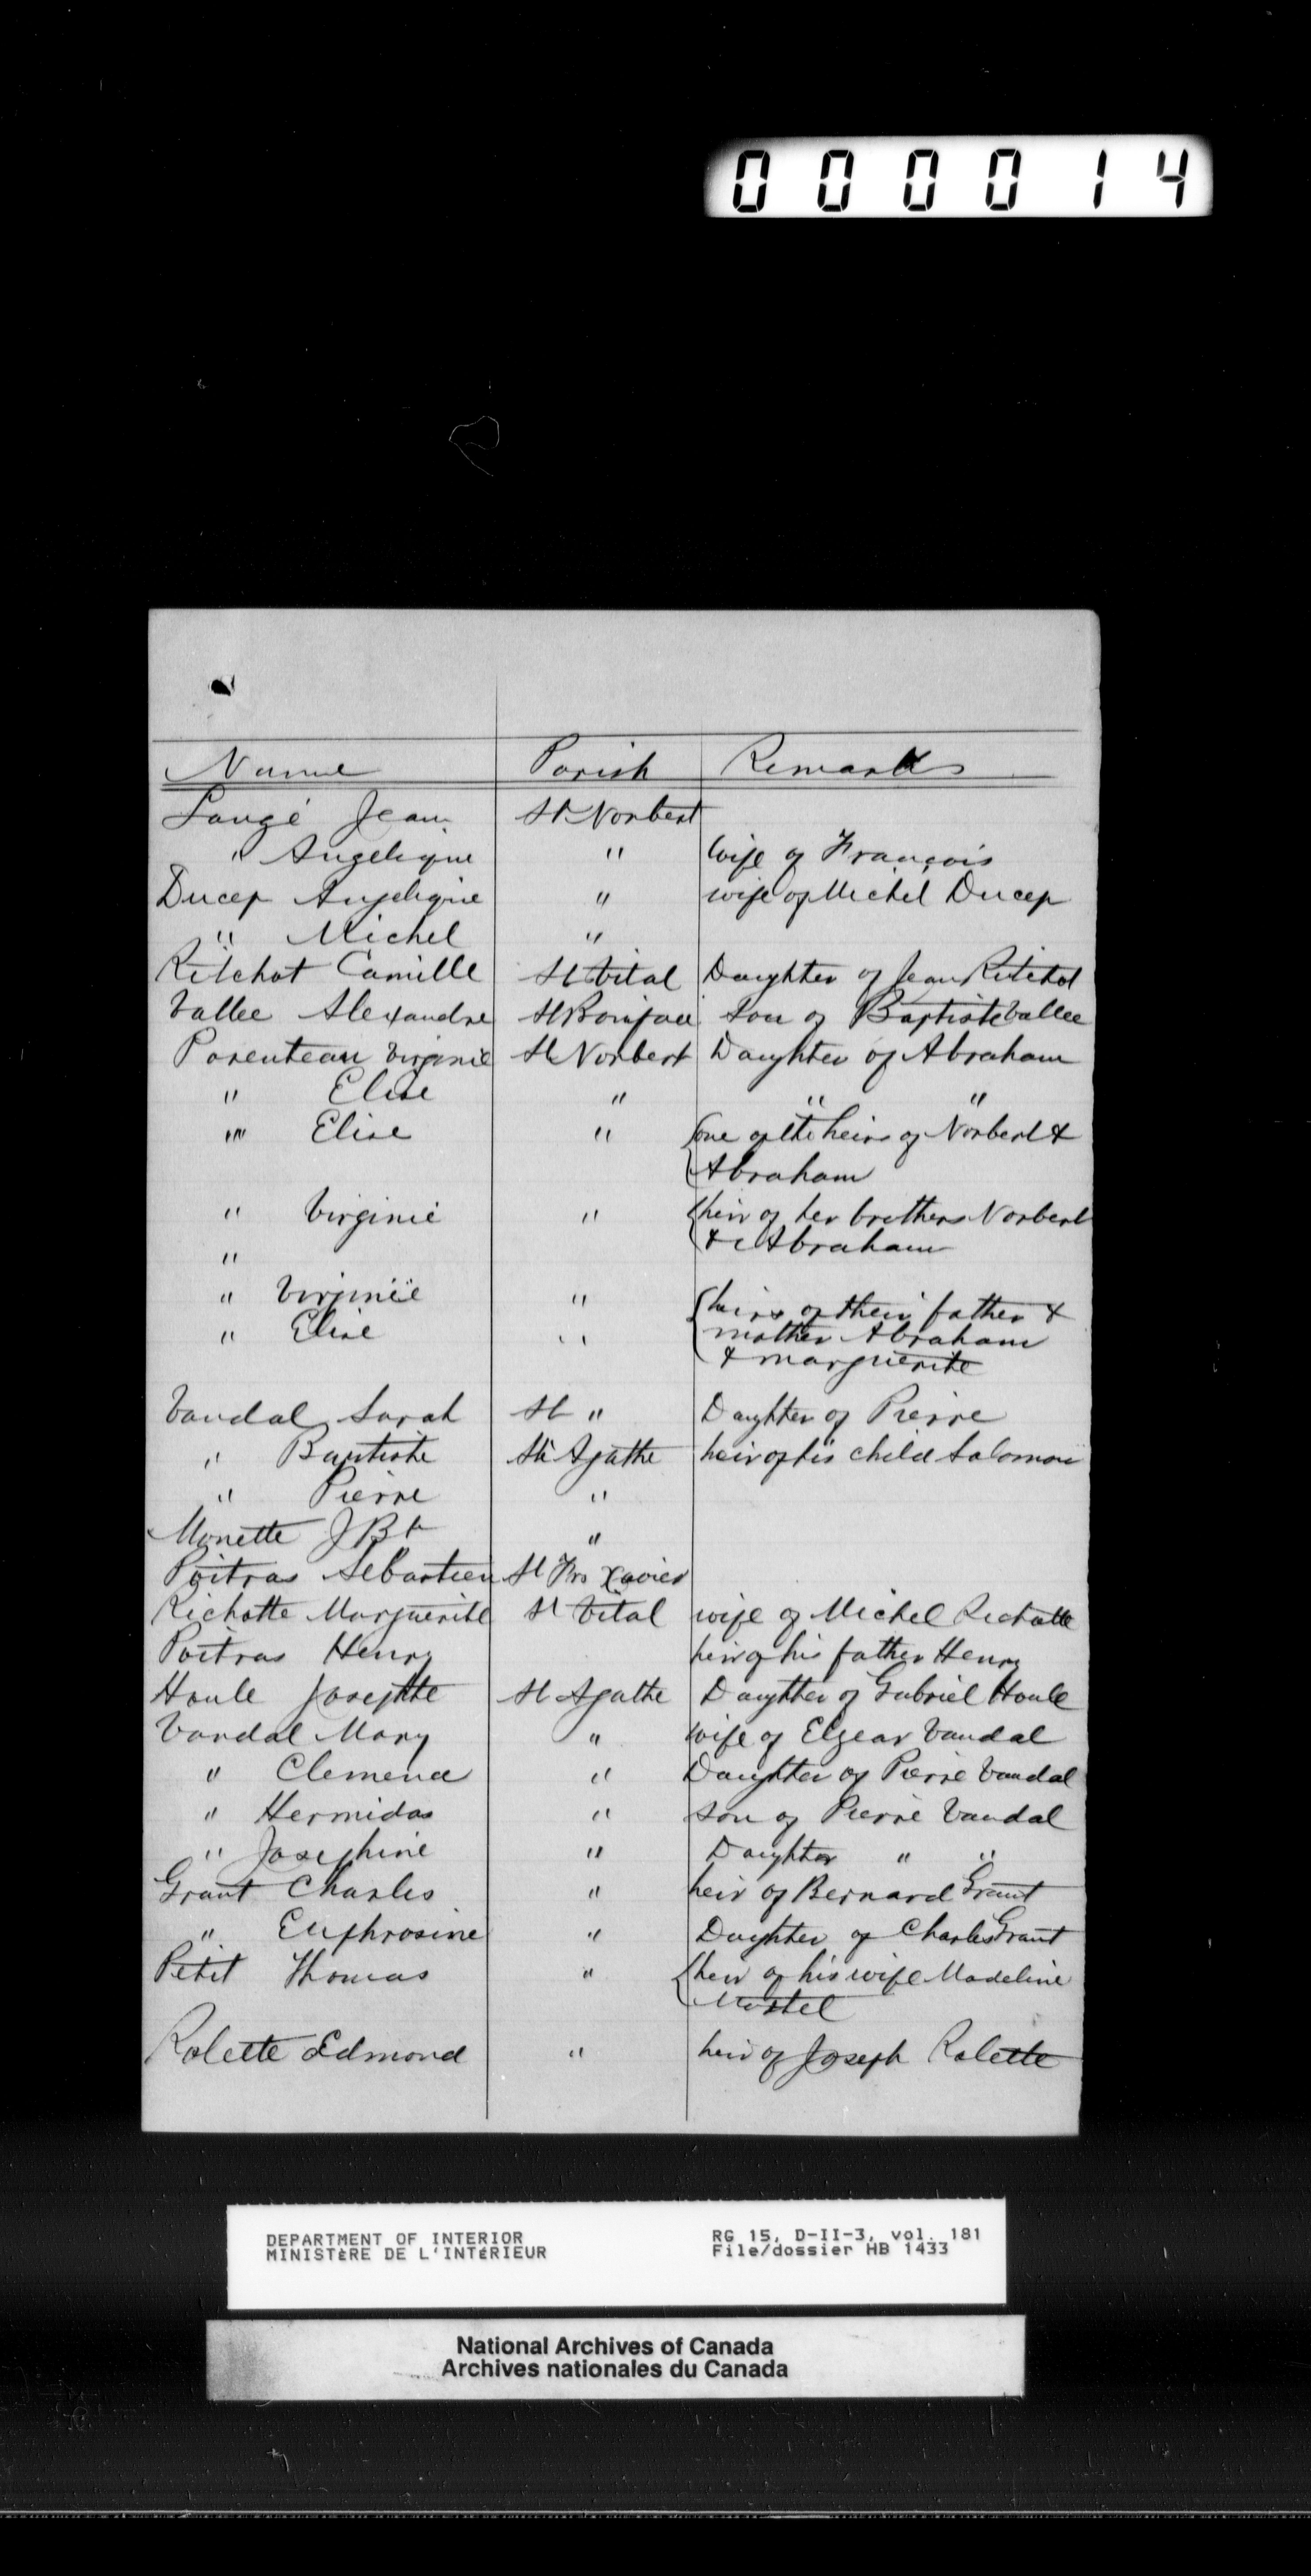 000014
Name Parish Remarks
Laugé Jean St Norbert
" Angelique " Wife of François
Ducep Angelique " wife of Michel Ducep
" Michel "
Ritchot Camille St Vital Daughter of Jean Ritchot
Vallee Alexandre St Boniface Son of Baptiste Vallee
Parenteau Virginie St Norbert Daughter of Abraham
" Elise " " "
"" Elise " one of the heirs of Norbert &
Abraham
" Virginie " heir of her brothers Norbert
" & Abraham
" Virginie " heirs of their father &
" Elise " mother Abraham
& Marguerite
Vandal Sarah St " Daughter of Pierre
" Baptiste Ste Agathe heir of his child Salomon
" Pierre "
Monette J Bte "
Poitras Sebastien St Frs Xavier
Richotte Marguerite St Vital wife of Michel Richotte
Poitras Henry heir of his father Henry
Houle Josephte St Agathe Daughter of Gabriel Houle
Vandal Mary " Wife of Elzear Vandal
" Clemence " Daughter of Pierre Vandal
" Hermidas " Son of Pierre Vandal
" Josephine " Daughter " "
Grant Charles " heir of Bernard Grant
" Euphrosine " Daughter of Charles Grant
Petit Thomas " heir of his wife Madeline
Rolette Edmond " heir of Joseph Rolette
DEPARTMENT OF INTERIOR RG 15, D-II-3, vol. 181
MINISTÈRE DE L'INTÉRIEUR File/dossier HB 1433
National Archives of Canada
Archives nationales du Canada